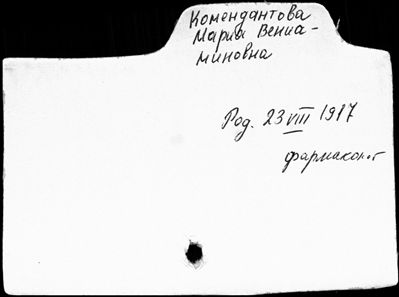 Комендантова
Мария Вениа-
миновна
Род. 23 VIII 1917
фармаколог